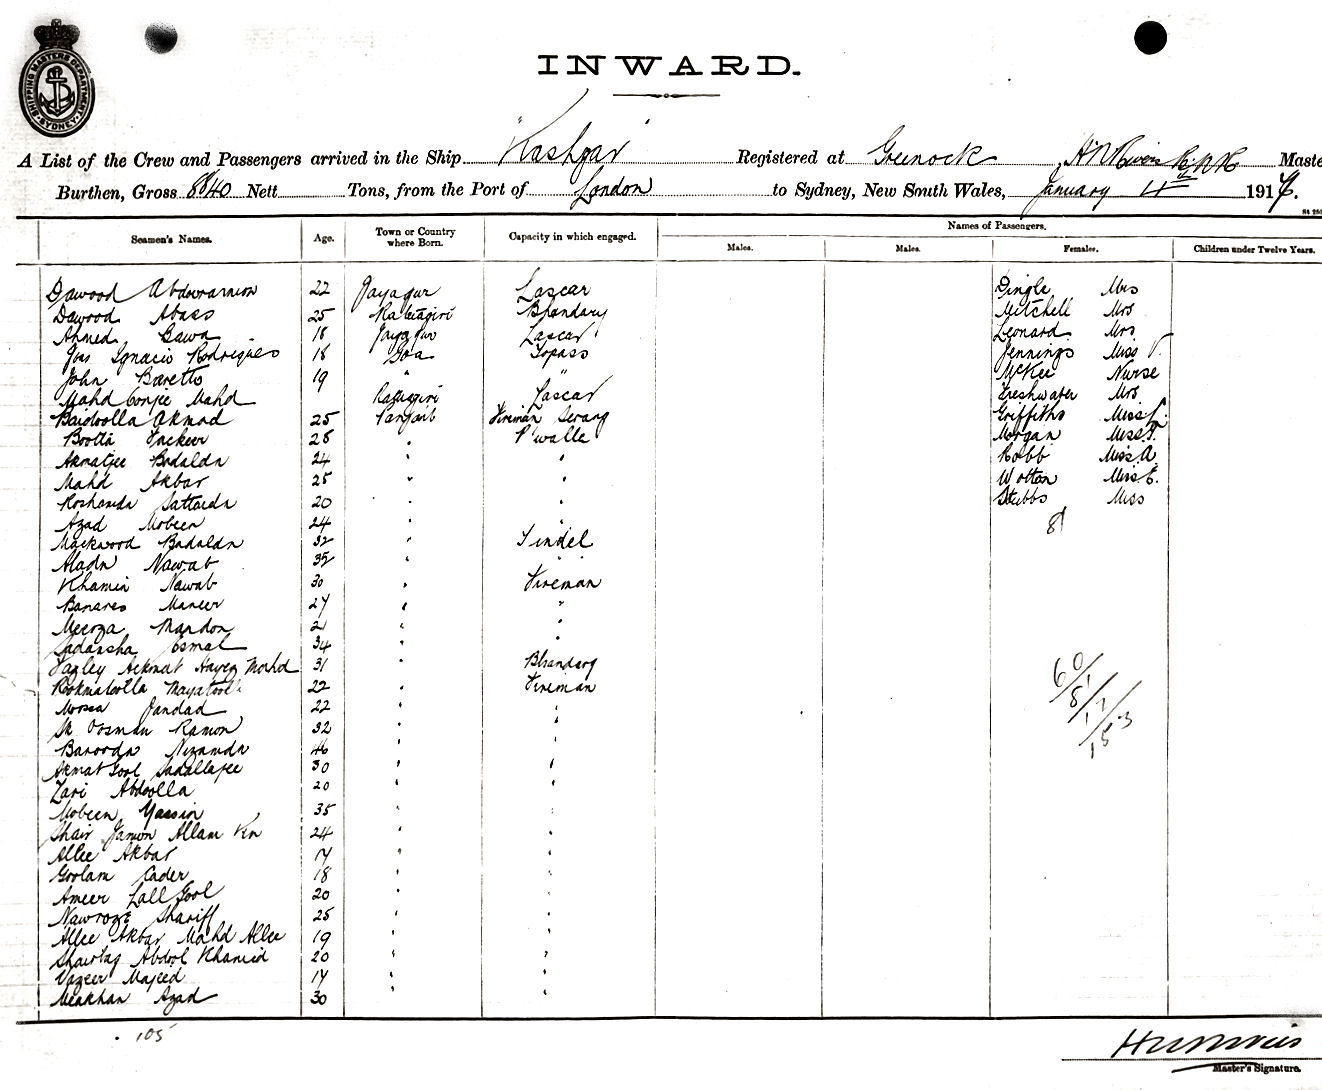 SHIPPING MASTERS DEPARTMENT SYDNEY
INWARD.
A List of the Crew and Passengers arrived in the Ship "Kashgar" Registered at Greenock, Master
Burthen, Gross 8840 Nett Tons, from the Port of London to Sydney, New South Wales, January 11th 1917.
Names of Passengers.
Seamen's Names. Age. Town or Country where Born. Capacity in which engaged. Males. Males. Females. Children under Twelve Years.
Dawood 22 Jaygur Lascar Dingle Mrs
Dawood Abass 25 Ratnagiri Bhandary Mitchell Mrs
Ahmed Bawa 18 Jaygur Lascar Leonard Mrs
Ignacio Rodrigues 18 Goa Topass Jennings Miss V.
John Baretto 19 " " McKee Nurse
Mahd Mahd Ratnagiri Lascar Freshwater Mrs
Baidoolla Akmad 25 Panjaib Fireman Serang Griffiths Miss
Bootta Fackeer 28 " P'walle Morgan Miss
Akmatjee Badaldn 24 " " Robb Miss A.
Mahd Akbar 25 " " Wotton Miss E.
Roshandn Sattardn 20 " " Stubbs Miss
Azad Mobeen 24 " " 81
Mackwood Badaldn 32 " Tindel
Aladn Nawab 35 " "
Khamin Nawab 30 " Fireman
Banares Maneer 27 " "
Meerza Mardon 21 " "
Sadarsha Esmal 34 " "
Fazley Hekmat Mohd 31 " Bhandary
22 " Fireman
Moosa Jandad 22 " "
Sk Oosman Ramon 32 " "
Baroordn Nizamdn 46 " "
Akmat Gool 30 " "
Zari Abdoolla 20 " "
Mobeen Yassin 35 " "
Shair Jamon Allam Kn 24 " "
Allee Akbar 17 " "
Goolam Cader 18 " "
Ameer Lall Gool 20 " "
Nawroze Shariff 25 " "
Allee Akbar Mahd Allee 19 " "
Abdool Khamid 20 " "
Vazeer Majeed 17 " "
Meakhan Azad 30 " "
60/81/12/153
105
Master's Signature.